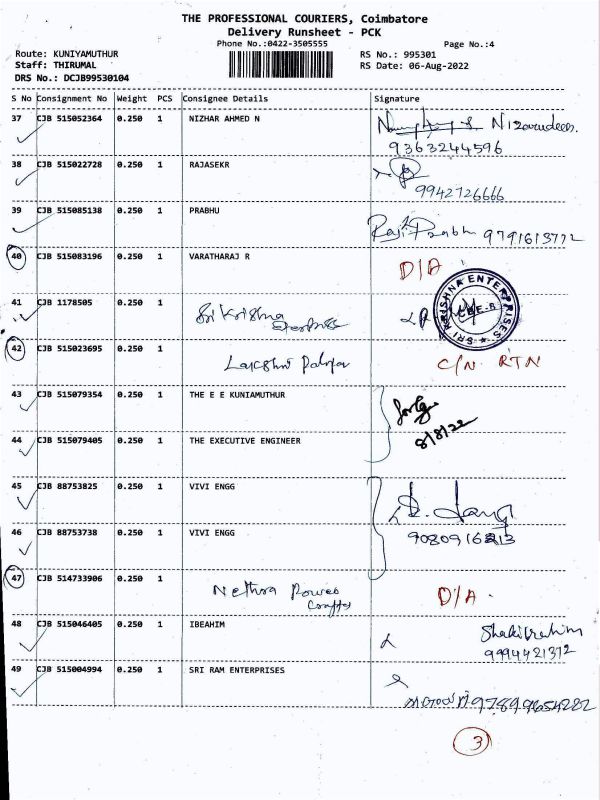 THE PROFESSIONAL COURIERS, Coimbatore
Delivery Runsheet - PCK
Phone No.:0422-3505555
Page No.:4
Route: KUNIYAMUTHUR
RS No.: 995301
Staff: THIRUMAL
RS Date: 06-Aug-2022
DRS No.: DCJB99530104
S No Consignment No Weight PCS Consignee Details Signature
37 CJB 515052364 0.250 1 NIZHAR AHMED N
9363244596
38 CJB 515022728 0.250 1 RAJASEKR
9942726666
39 CJB 515085138 0.250 1 PRABHU
Prabhu 9791613772
40 CJB 515083196 0.250 1 VARATHARAJ R
D/A
41 CJB 1178505 0.250 1 Sri Krishna
SRI KRISHNA ENTERPRISES
CBE-8
42 CJB 515023695 0.250 1
Lakshmi
C/N RTN
43 CJB 515079354 0.250 1 THE E E KUNIAMUTHUR
8/8/22
44 CJB 515079405 0.250 1 THE EXECUTIVE ENGINEER
45 CJB 88753825 0.250 1 VIVI ENGG
46 CJB 88753738 0.250 1 VIVI ENGG
47 CJB 514733906 0.250 1
Nethra Power
D/A
48 CJB 515046405 0.250 1 IBEAHIM
9994421372
49 CJB 515004994 0.250 1 SRI RAM ENTERPRISES
3